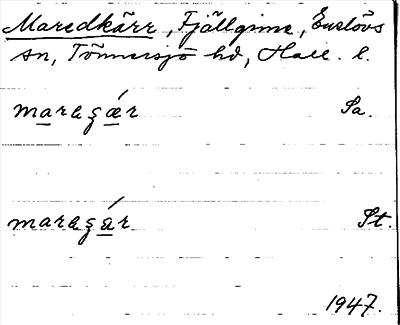 Maredkärr, Fjällgine, Enslövs
sn, Tönnersjö hd, Hall. l.
maragǽr Sa.
maragár St.
1947.